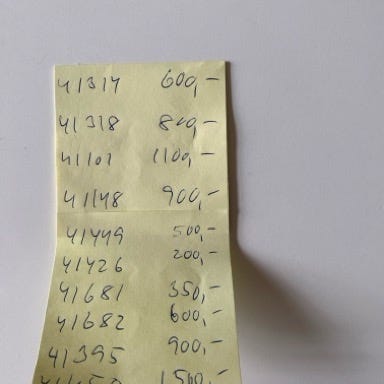 41317 600,-
41318 800,-
41101 1100,-
41148 900,-
41449 500,-
41426 200,-
41681 350,-
41682 600,-
41395 900,-
1500,-